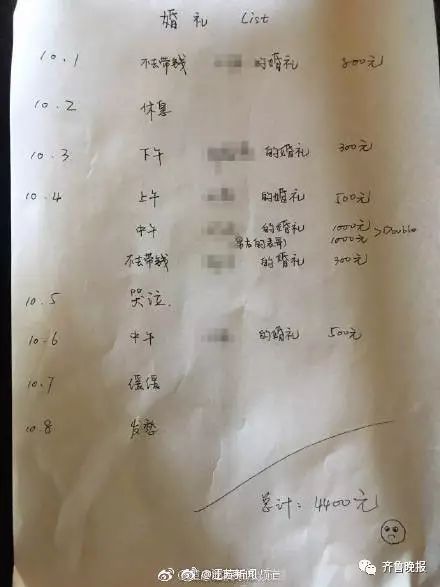 婚礼 List
10.1 不去带钱 的婚礼 800元
10.2 休息
10.3 下午 的婚礼 300元
10.4 上午 的婚礼 500元
中午 的婚礼 1000元 >Double
的表哥) 1000元
不去带钱 的婚礼 300元
10.5 哭泣.
10.6 中午 的婚礼 500元
10.7 缓缓
10.8 发愁
总计: 4400元
@江苏新闻
齐鲁晚报